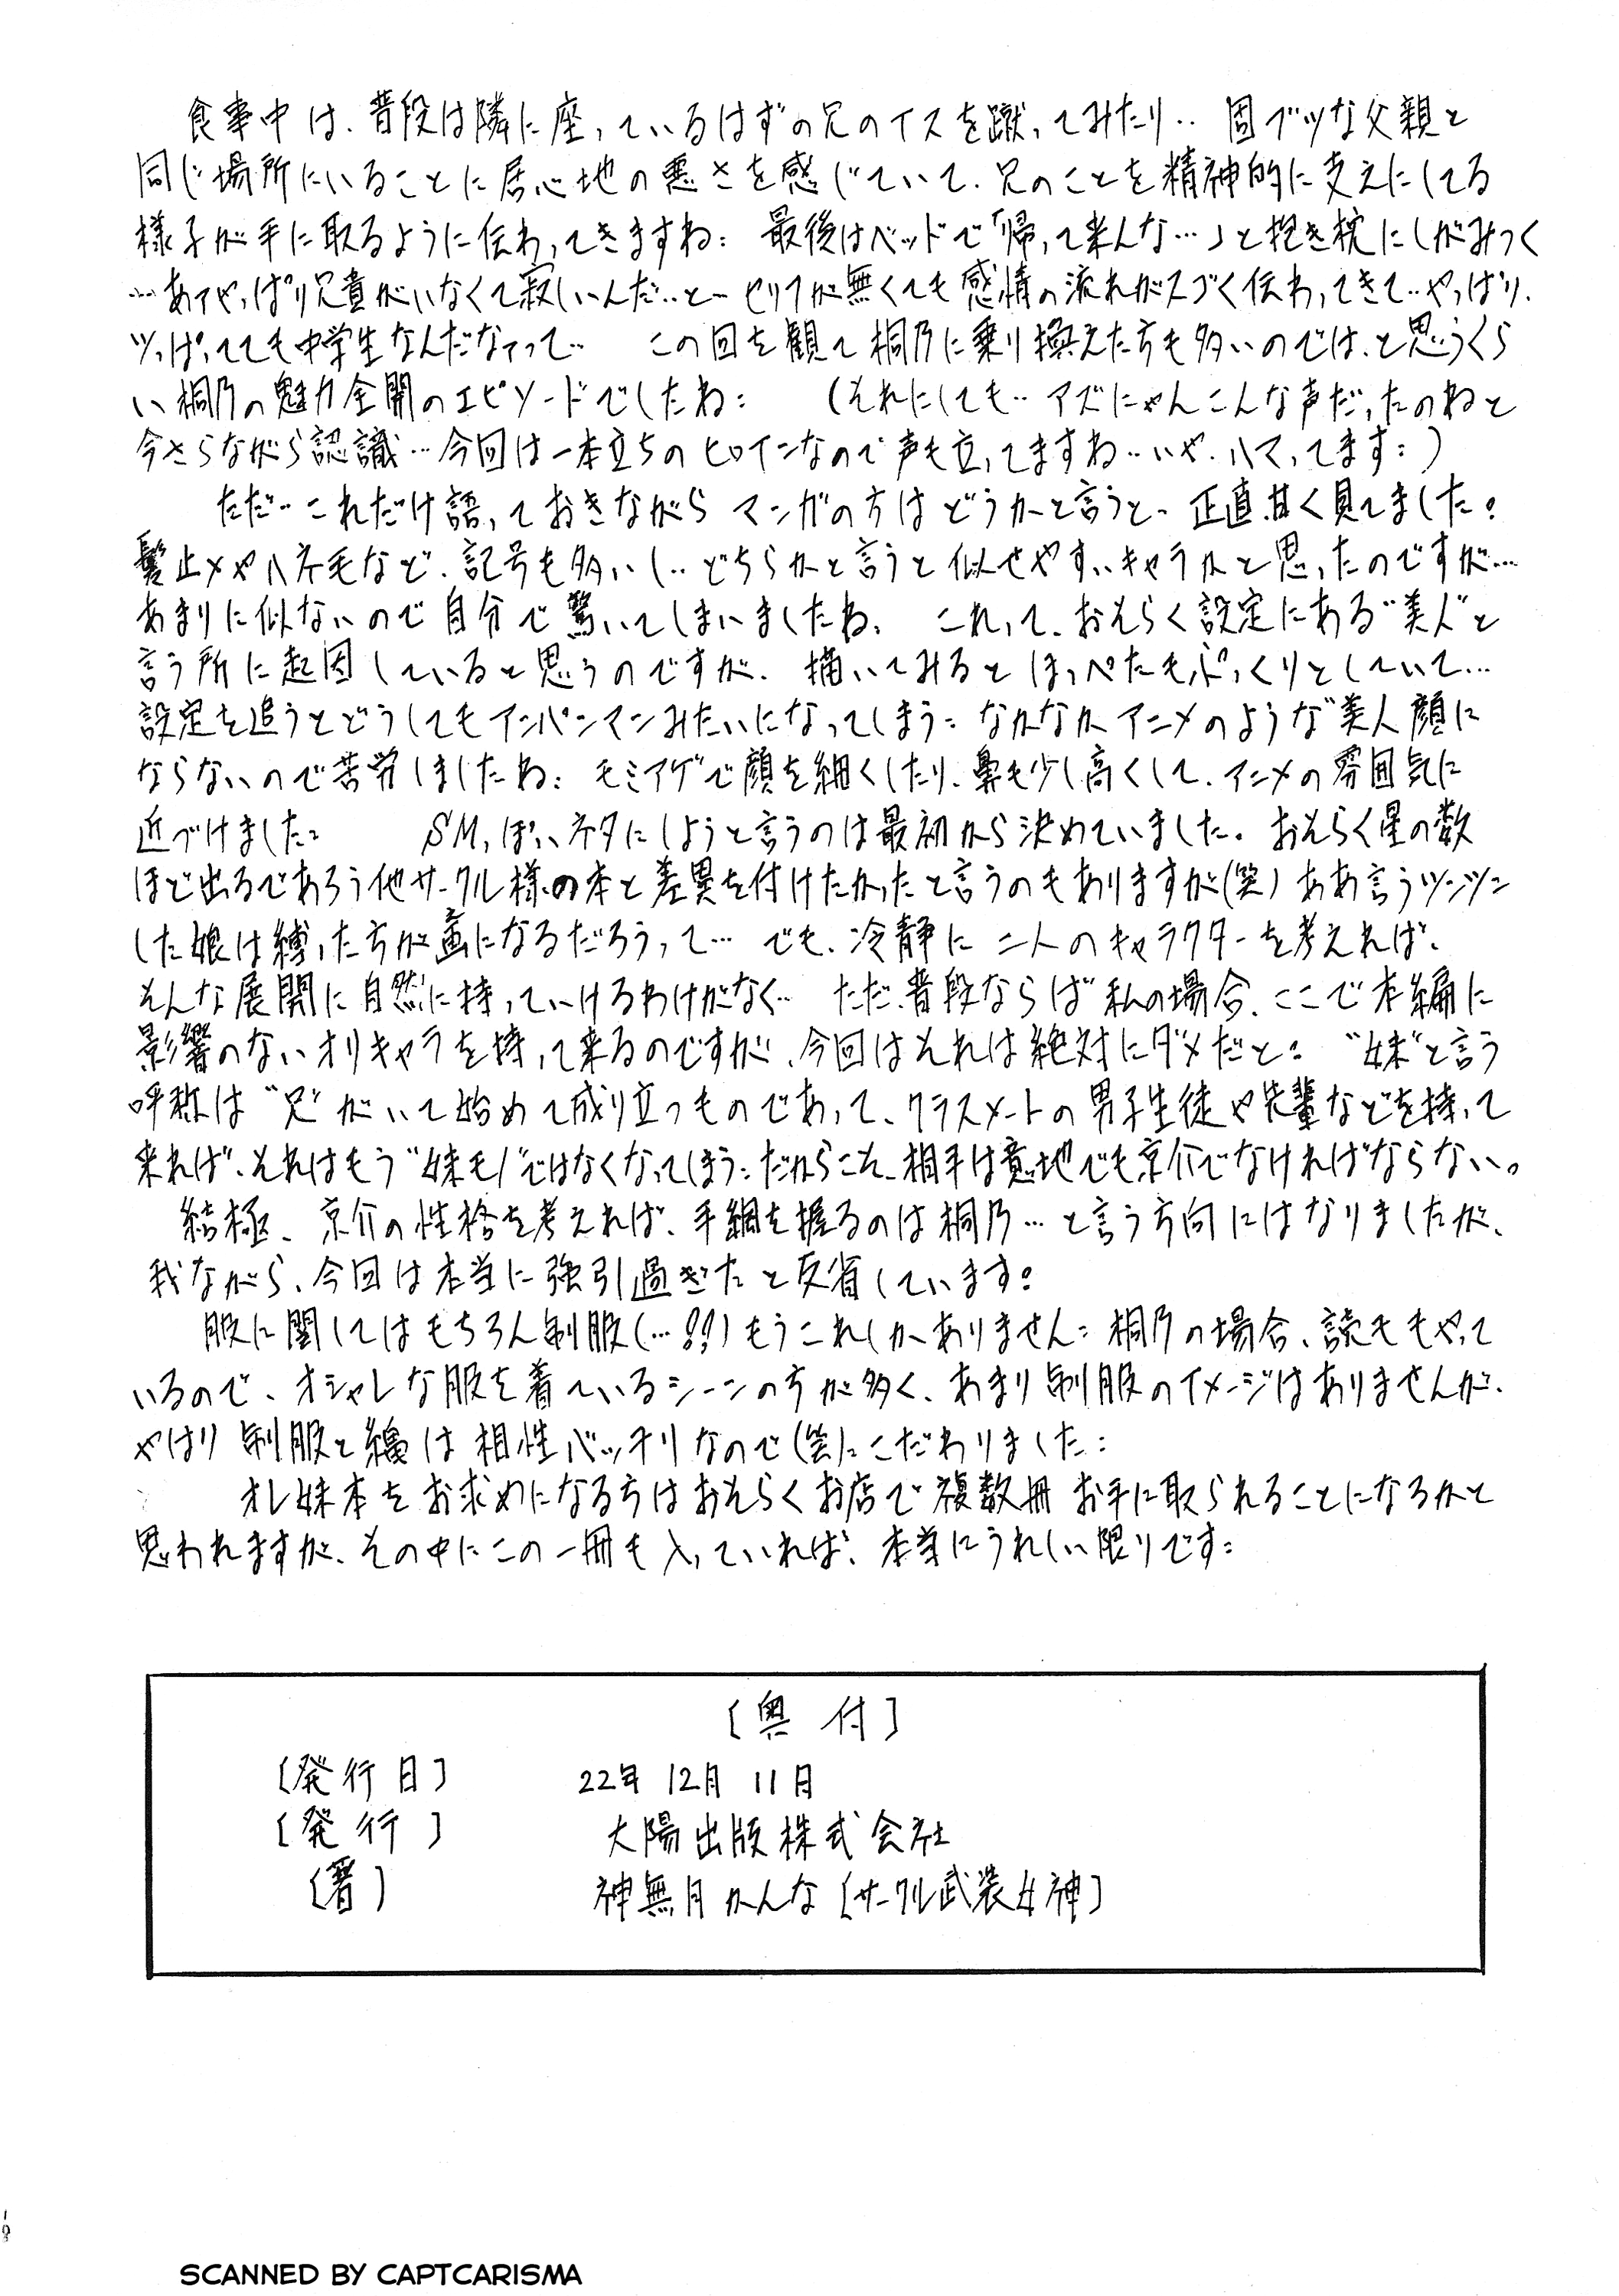 食事中は、普段は隣に座っているはずの兄のイスを蹴ってみたり‥ 固ブツな父親と
同じ場所にいることに居心地の悪さを感じていて、兄のことを精神的に支えにしてる
様子が手に取るように伝わってきますね: 最後はベッドで「帰って来んな…」と抱き枕にしがみつく
…あァやっぱり兄貴がいなくて寂しいんだ‥と― セリフが無くても感情の流れがスゴく伝わってきて‥やっぱり、
ツッぱってても中学生なんだなァって‥ この回を観て桐乃に乗り換えた方も多いのでは、と思うくら
い桐乃の魅力全開のエピソードでしたね: (それにしても‥アズにゃんこんな声だったのねと
今さらながら認識…今回は一本立ちのヒロインなので声も立ってますね‥いや、ハマってます:)
ただ‥これだけ語っておきながらマンガの方はどうかと言うと、正直甘く見てました:
髪止メやハネ毛など、記号も多いし‥どちらかと言うと似せやすいキャラかと思ったのですが…
あまりに似ないので自分で驚いてしまいましたね: これって、おそらく設定にある“美人”と
言う所に起因していると思うのですが、描いてみるとほっぺたもぷっくりとしていて…
設定を追うとどうしてもアンパンマンみたいになってしまう: なかなかアニメのような“美人顔に
ならないので苦労しましたね: モミアゲで顔を細くしたり、鼻も少し高くして、アニメの雰囲気に
近づけました: SMっぽいネタにしようと言うのは最初から決めていました。おそらく星の数
ほど出るであろう他サークル様の本と差異を付けたかったと言うのもありますが(笑)ああ言うツンツン
した娘は縛った方が画になるだろうって… でも、冷静に二人のキャラクターを考えれば、
そんな展開に自然に持っていけるわけがなく‥ ただ、普段ならば私の場合、ここで本編に
影響のないオリキャラを持って来るのですが、今回はそれは絶対にダメだと: “妹”と言う
呼称は“兄”がいて始めて成り立つものであって、クラスメートの男子生徒や先輩などを持って
来れば、それはもう“妹モノ”ではなくなってしまう: だからこそ、相手は意地でも京介でなければならない。
結極、京介の性格を考えれば、手綱を握るのは桐乃…と言う方向にはなりましたが、
我ながら、今回は本当に強引過ぎたと反省しています:
服に関してはもちろん制服(…!!)もうこれしかありません: 桐乃の場合、読モもやって
いるので、オシャレな服を着ているシーンの方が多く、あまり制服のイメージはありませんが、
やはり制服と縄は相性バッチリなので(笑)こだわりました:
オレ妹本をお求めになる方はおそらくお店で複数冊お手に取られることになるかと
思われますが、その中にこの一冊も入っていれば、本当にうれしい限りです:
[奥付]
[発行日] 22年 12月 11日
[発行] 大陽出版株式会社
[著] 神無月かんな[サークル武装女神]
SCANNED BY CAPTCARISMA